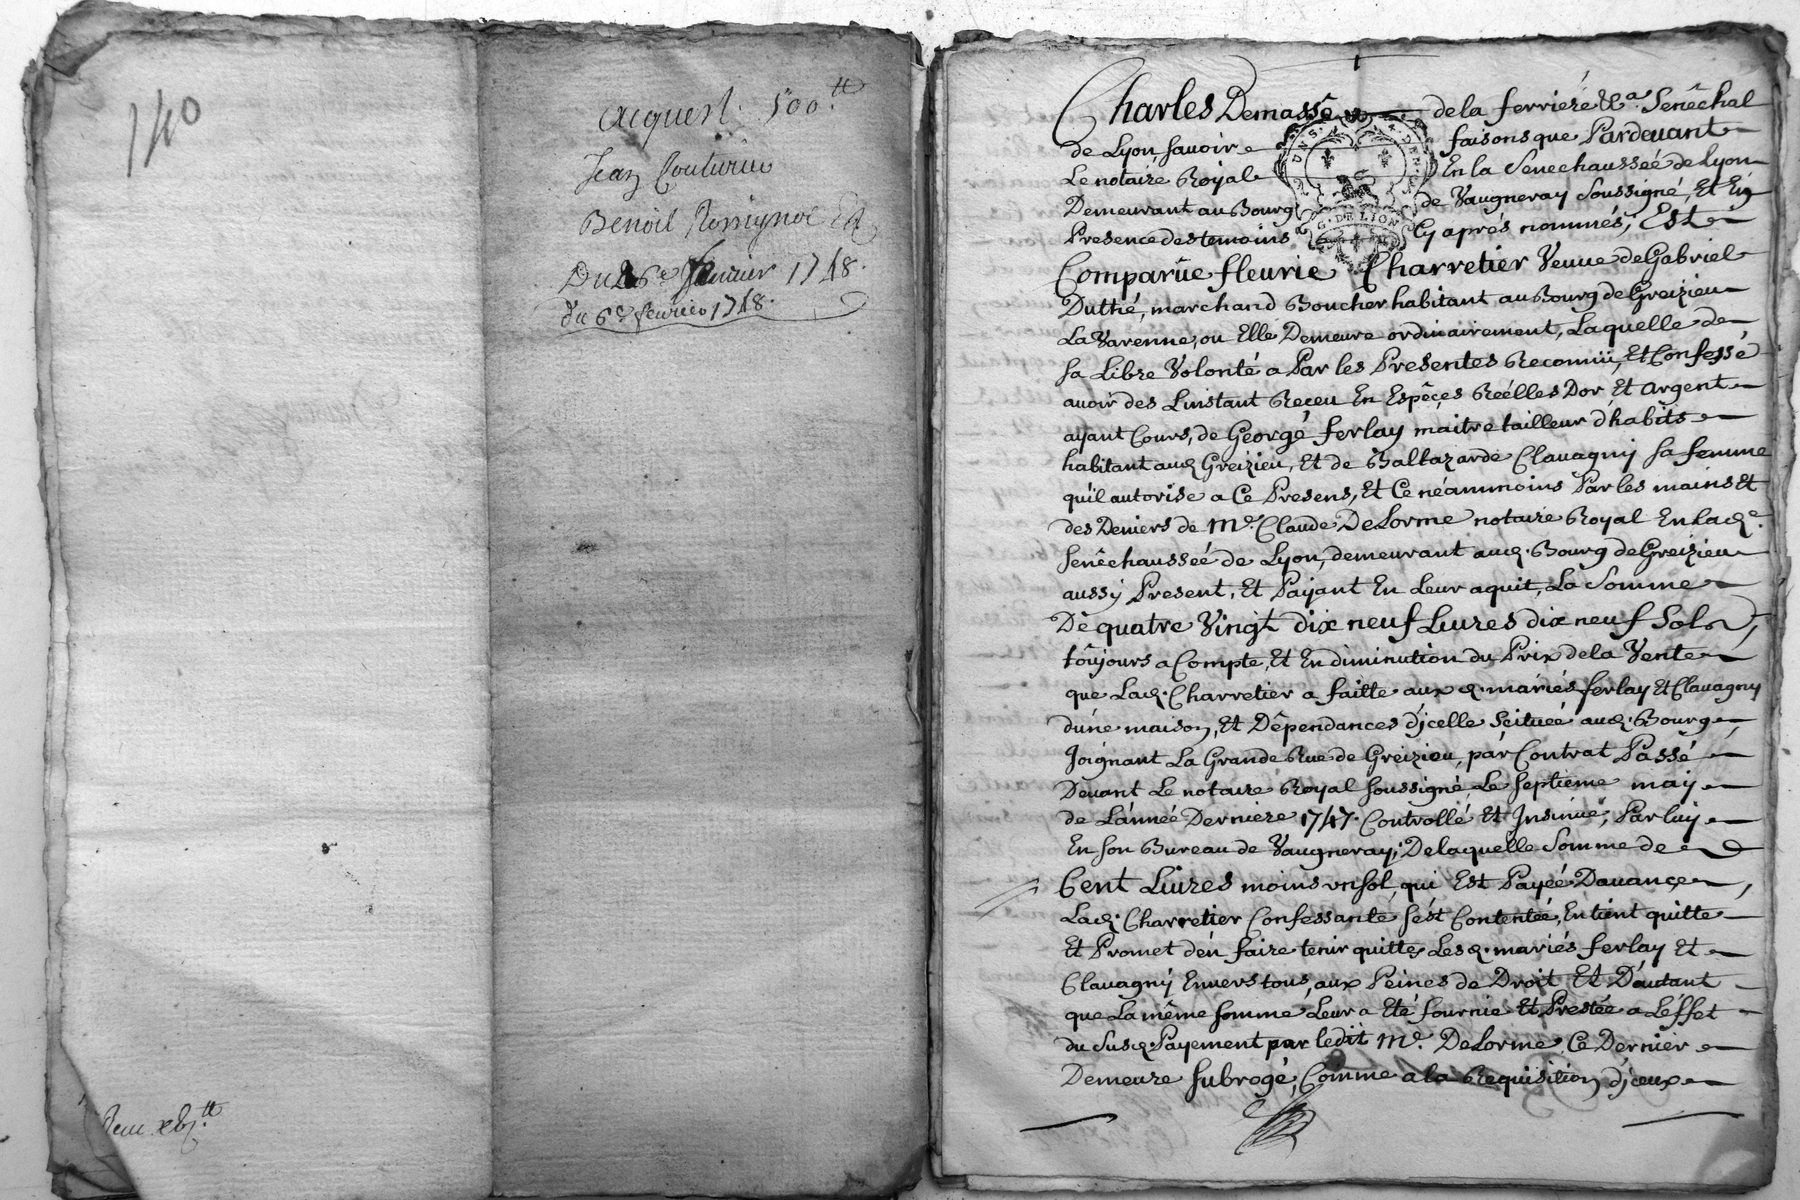 140
Acquest. 500.tt
Jean Couturier
Benoit Rossignol Et
Du 6e fevrier 1748.
du 6e fevrier 1748.
Receu xbj.tt
Charles Demasse de la ferriere &a. Senêchal
de Lyon savoir faisons que Pardevant
Le notaire Royal En la Senechaussée de Lyon
Demeurant au Bourg de Vaugneray Soussigné, Et En
Presence des temoins Cy aprés nommés, Est
G. DE LION
Comparüe fleurie Charretier Veuve de Gabriel
Duthé, marchand Boucher habitant au Bourg de Greizieu
La Varenne, ou Elle Demeure ordinairement, Laquelle de
sa Libre Volonté a Par les Presentes Reconnü, Et Confessé
avoir des Linstant Receu En Espêces Réélles Dor Et argent
ayant Cours, de George ferlay maitre tailleur d'habits
habitant aud. Greizieu, Et de Baltazarde Clavagnÿ sa femme
quil autorise a Ce Presens, Et Ce néammoins Par les mains Et
des Deniers de Me. Claude DeLorme notaire Royal En lad.e
senêchaussée de Lyon, demeurant aud. Bourg de Greizieu
aussÿ Present, Et Paÿant En Leur aquit, La Somme
De quatre Vingt dix neuf Livres dix neuf Sols,
toûjours a Compte, Et En diminution du Prix de la Vente
que Lad. Charretier a faitte aux d. mariés ferlay Et Clavagny
dune maison, Et Dêpendances d'jcelle Scituée aud. Bourg
Joignant La Grande Rue de Greizieu, par Contrat Passé
Devant Le notaire Royal soussigné Le Septieme maÿ
de L'année Derniere 1747. Controllé Et Insinué, Par luÿ
En son Bureau de Vaugneray, De laquelle Somme de
Cent Livres moins un sol, qui Est Payée D'avance,
Lad. Charretier Confessante s'ést Contentée, En tient quitte
Et Promet d'én faire tenir quittes Lesd. mariés ferlay Et
Clavagnÿ Envers tous, aux Peines de Droit Et D'autant
que La même somme Leur a Eté fournie Et Prestée a L'éffet
du Susd. Payement par ledit Me. DeLorme, Ce Dernier
Demeure subrogé, Comme a la Requisition d'jceux